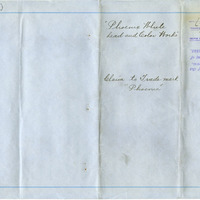 "Phoenix White
Lead and Color Works"
Claim to Trade mark
"Phoenix"